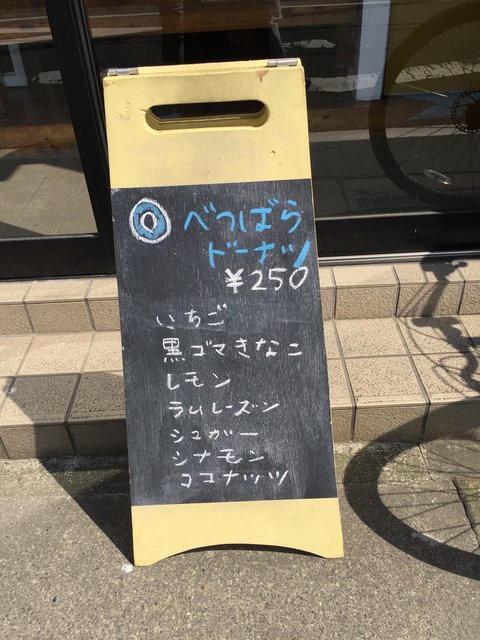 べつばら
ドーナツ
¥250
いちご
黒ゴマきなこ
レモン
ラムレーズン
シュガー
シナモン
ココナッツ